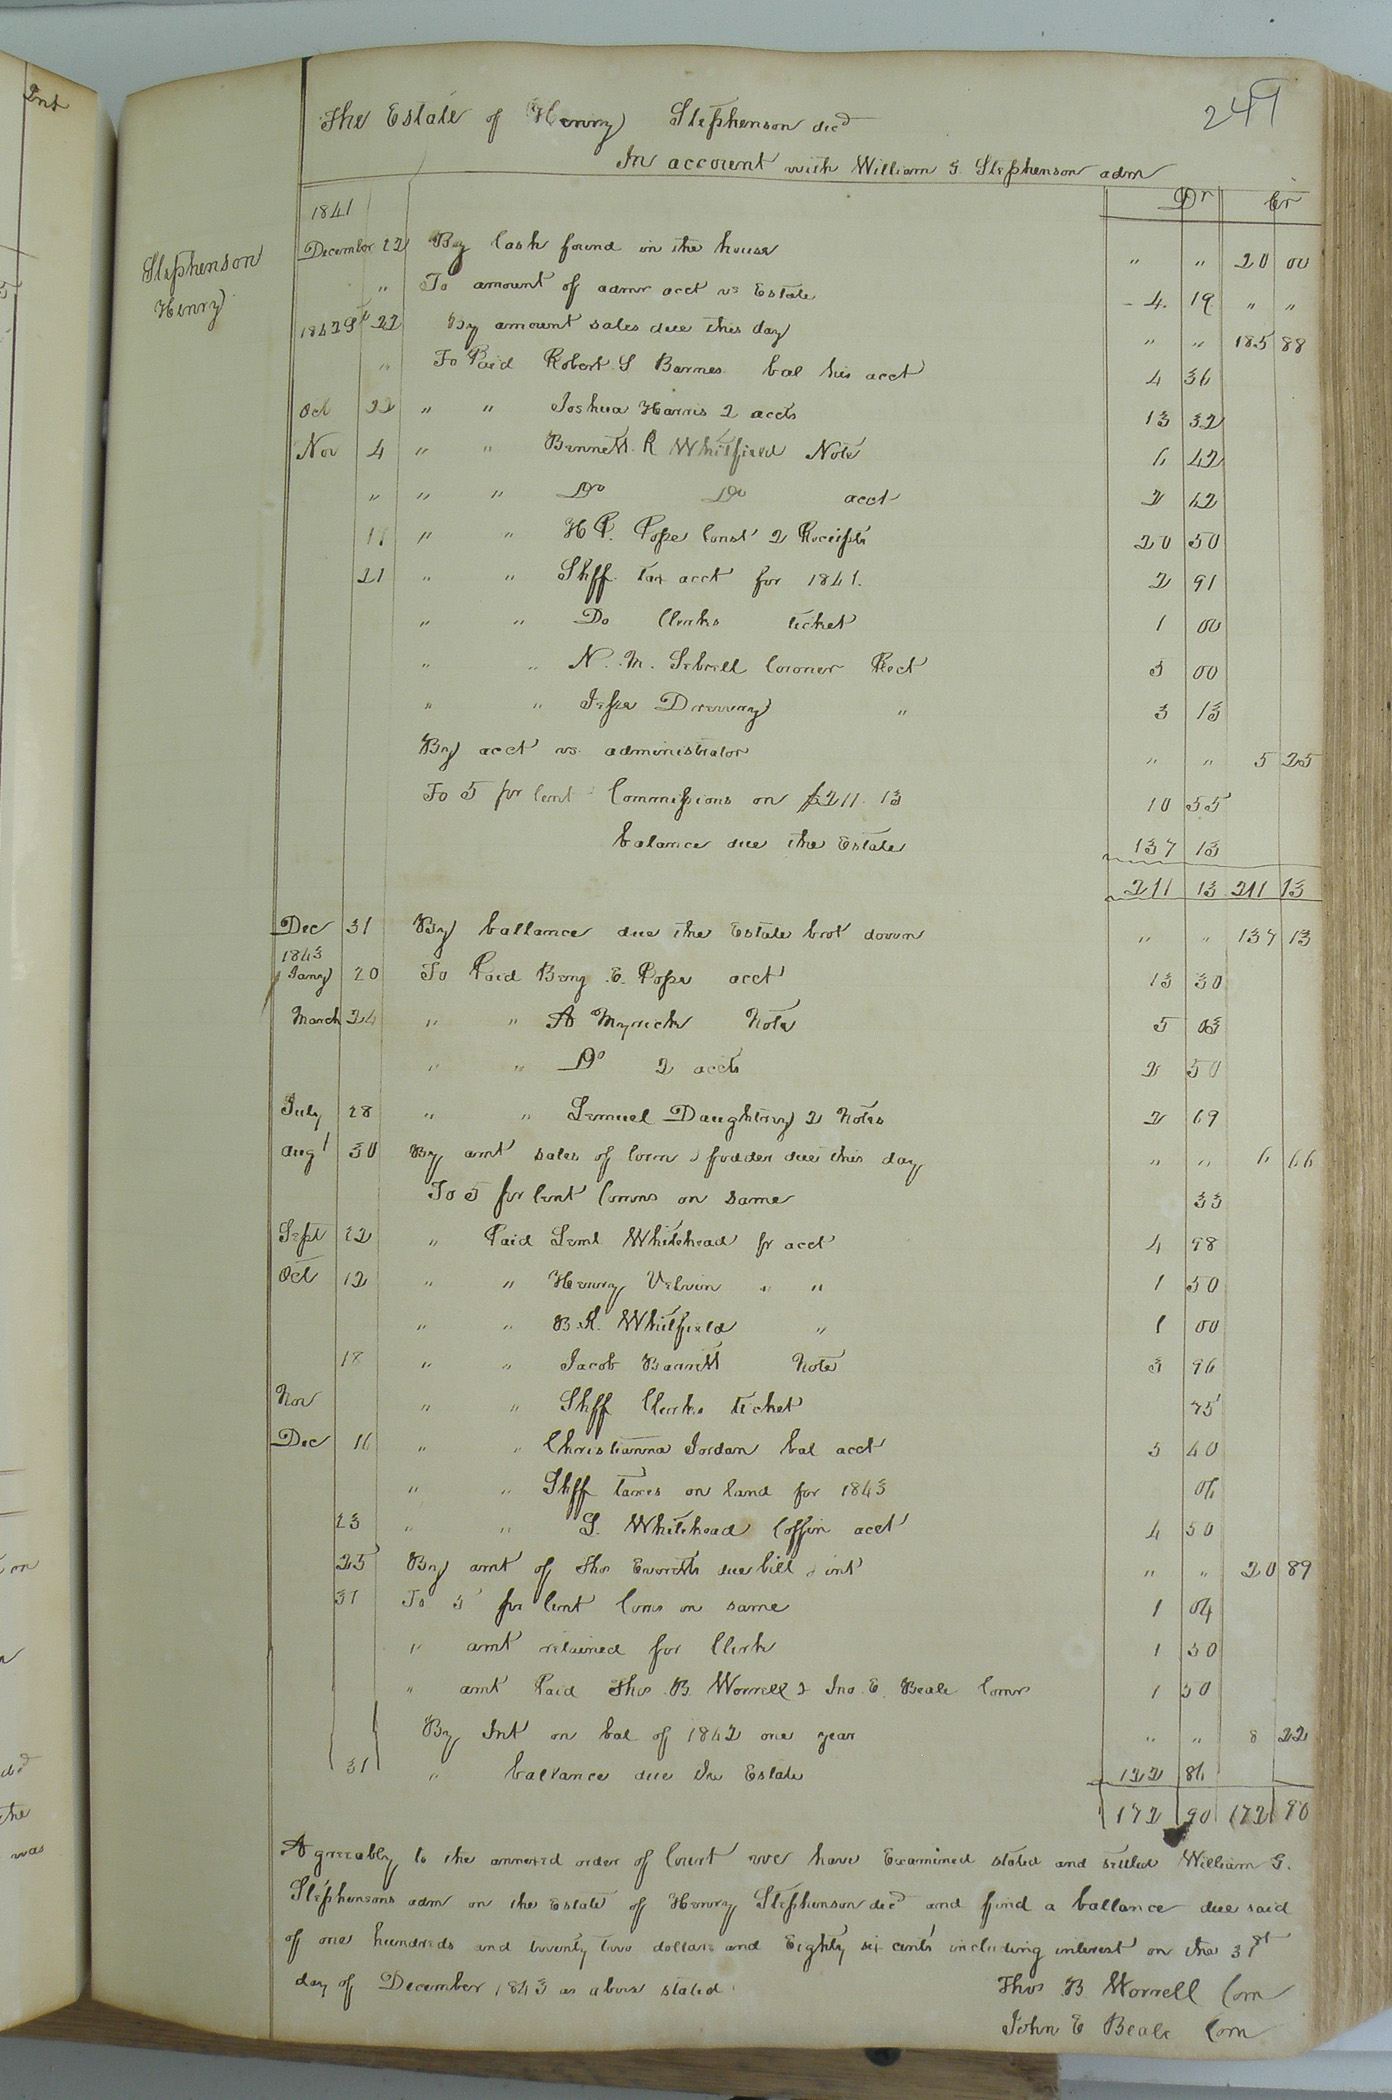 249
The Estate of Henry Stephenson decd
In account with William G. Stephenson adm
Dr Cr
1841
Stephenson
Henry
December 22 By Cash found in the house " " 20 00
" To amount of admr acct vs Estate 4. 19 " "
1842 22 By amount sales due this day " " 185 88
" To Paid Robert S Barnes bal his acct 4 36
Oct 22 " " Joshua Harris 2 accts 13 32
Nov 4 " " Bennett R Whitfield Note 6 42
" " " Do Do acct 2 62
" " H P. Pope Const 2 Receipts 20 50
21 " " Shff Tax acct for 1841. 2 91
" " Do Clerks ticket 1 00
" " N. M. Sebrell Coroner Rect 5 00
" " Jesse Drewry " 3 13
By acct vs. administrator " " 5 25
To 5 per Cent Commissions on $211. 13 10 55
balance due the Estate 137 13
211 13 211 13
Dec 31 By ballance due the Estate brot down " " 137 13
1843
Jany 20 To Paid Benj E. Pope acct 13 30
March 24 " " A Myrick Note 5 03
" " Do 2 accts 2 50
July 28 " " Lemuel Daughtrey 2 Notes 2 69
Augt 30 By amt sales of Corn & fodder due this day " " 6 66
To 5 per Cent Comns on same 33
Sept 22 " Paid Leml Whitehead pr acct 4 98
Oct 12 " " Henry Velvin " " 1 50
" " B. R. Whitfield " 1 00
18 " " Jacob Barrett Note 3 96
Nov " " Shff Clerks ticket 75
Dec 16 " " Christianna Jordan bal acct 5 40
" " Shff taxes on land for 1843 06
23 " " L. Whitehead Coffin acct 4 50
25 By amt of Thos due bill & int " " 20 89
31 To 5 per Cent Coms on same 1 04
" amt retained for Clerk 1 50
" amt Paid Thos. B. Worrell & Jno. E. Beale Comr 1 50
By Int on bal of 1842 one year " " 8 22
31 " ballance due the Estate 122 86
172 90 172 90
Agreeably to the annexed order of Court we have Examined stated and settled William G.
Stephensons adm on the Estate of Henry Stephenson decd and find a ballance due said
of one hundreds and twenty two dollars and Eighty six cents including interest on the 31st
day of December 1843 as above stated.
Thos B Worrell Com
John E Beale Com